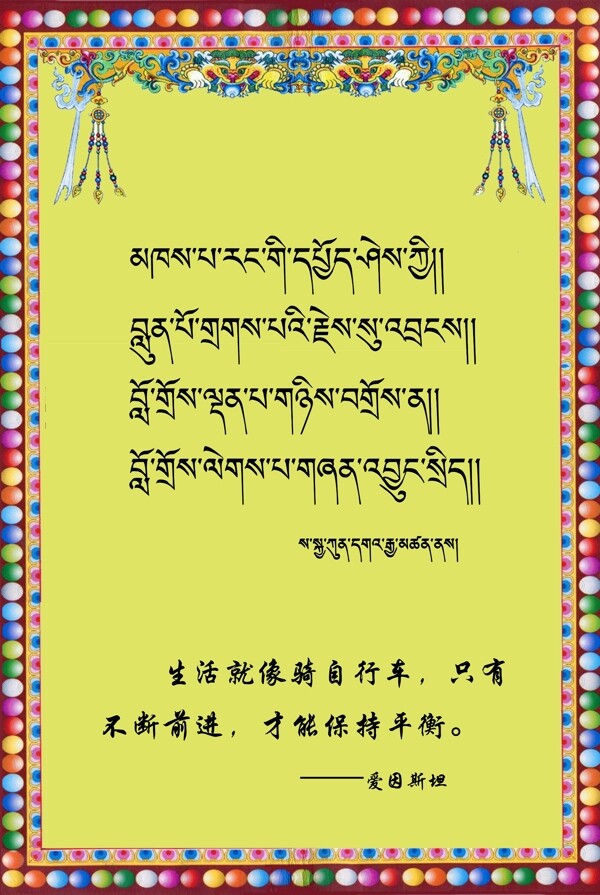 མཁས་པ་རང་གི་དཔྱོད་ཤེས་ཀྱི།།
བླུན་པོ་གྲགས་པའི་རྗེས་སུ་འབྲངས།།
བློ་གྲོས་ལྡན་པ་གཉིས་བགྲོས་ན།།
བློ་གྲོས་ལེགས་པ་གཞན་འབྱུང་སྲིད།།
ས་སྐྱ་ཀུན་དགའ་རྒྱ་མཚན་ནས།
生活就像骑自行车，只有
不断前进，才能保持平衡。
———爱因斯坦